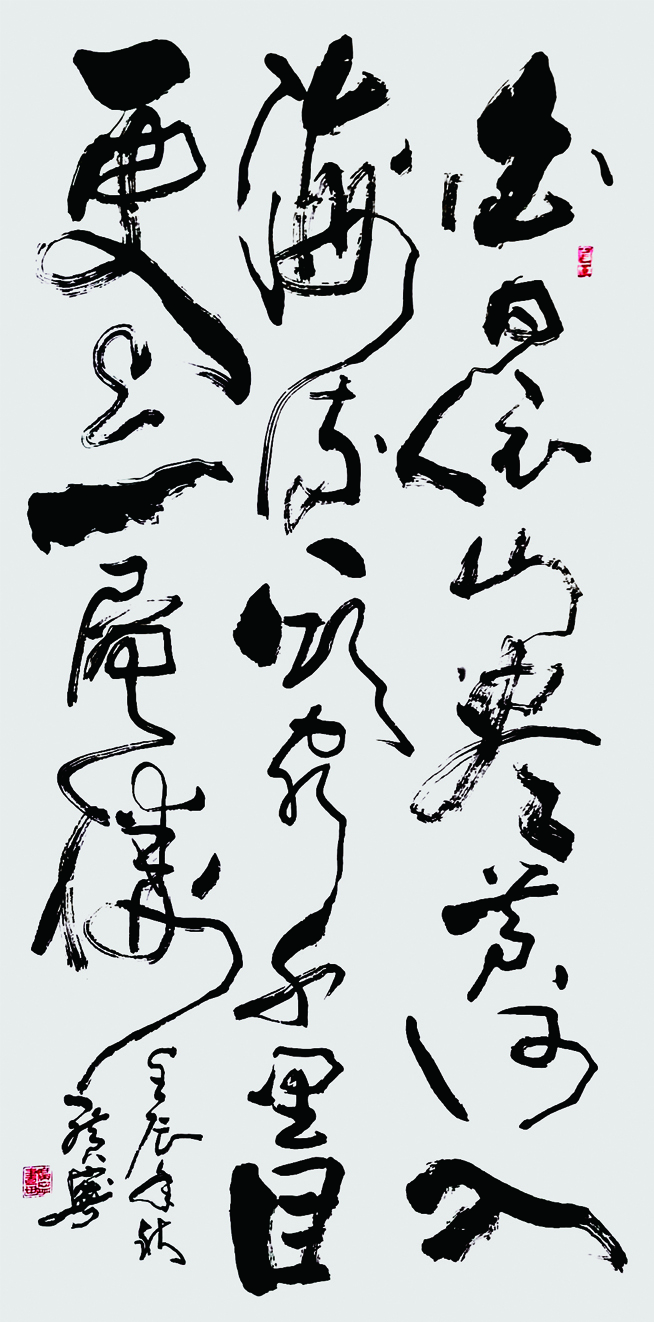 白日依山盡黄河入
海流欲窮千里目
更上一層樓
壬辰年秋